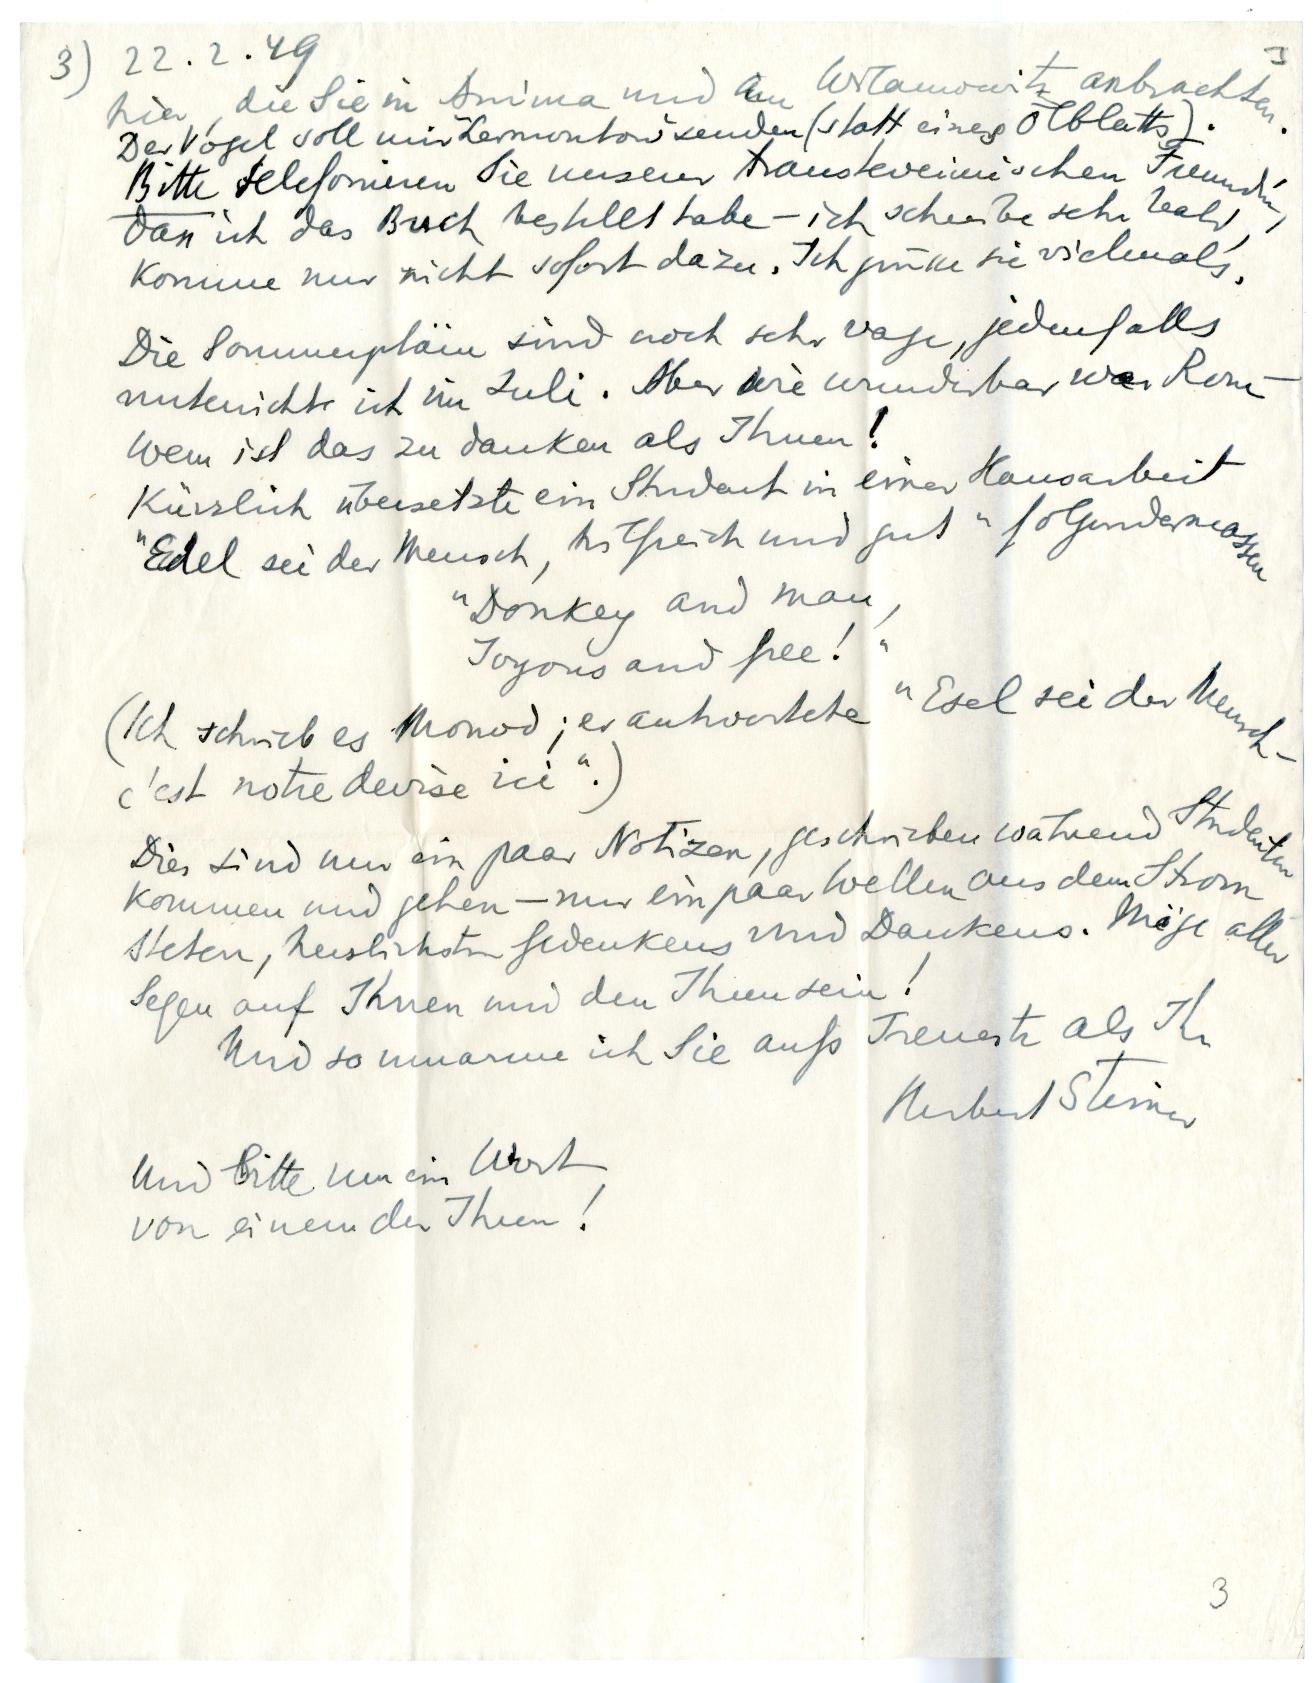 3) 22.2.49
3
hier, die Sie in Anima und am Wilamowitz anbrachten.
Der Vogel soll mir Lermontow senden (statt eines Ölblatts).
Bitte telefonieren Sie unserer transteverinischen Freundin,
dass ich das Buch bestellt habe – ich schreibe sehr bald,
komme nur nicht sofort dazu. Ich grüsse sie vielmals.
Die Sommerpläne sind noch sehr vage, jedenfalls
unterrichte ich im Juli. Aber wie wunderbar war Rom –
wem ist das zu danken als Ihnen!
Kürzlich übersetzte ein Student in einer Hausarbeit
"Edel sei der Mensch, hilfreich und gut" folgendermassen
"Donkey and man,
Joyous and free!"
(Ich schrieb es Monod; er antwortete "Esel sei der Mensch –
c'est notre devise ici".)
Dies sind nur ein paar Notizen, geschrieben während Studenten
kommen und gehen – nur ein paar Wellen aus dem Strom
steten, herzlichsten Gedenkens und Dankens. Möge aller
Segen auf Ihnen und den Ihren sein!
Und so umarme ich Sie aufs Treueste als Ihr
Herbert Steiner
Und bitte um ein Wort
von einem der Ihren!
3